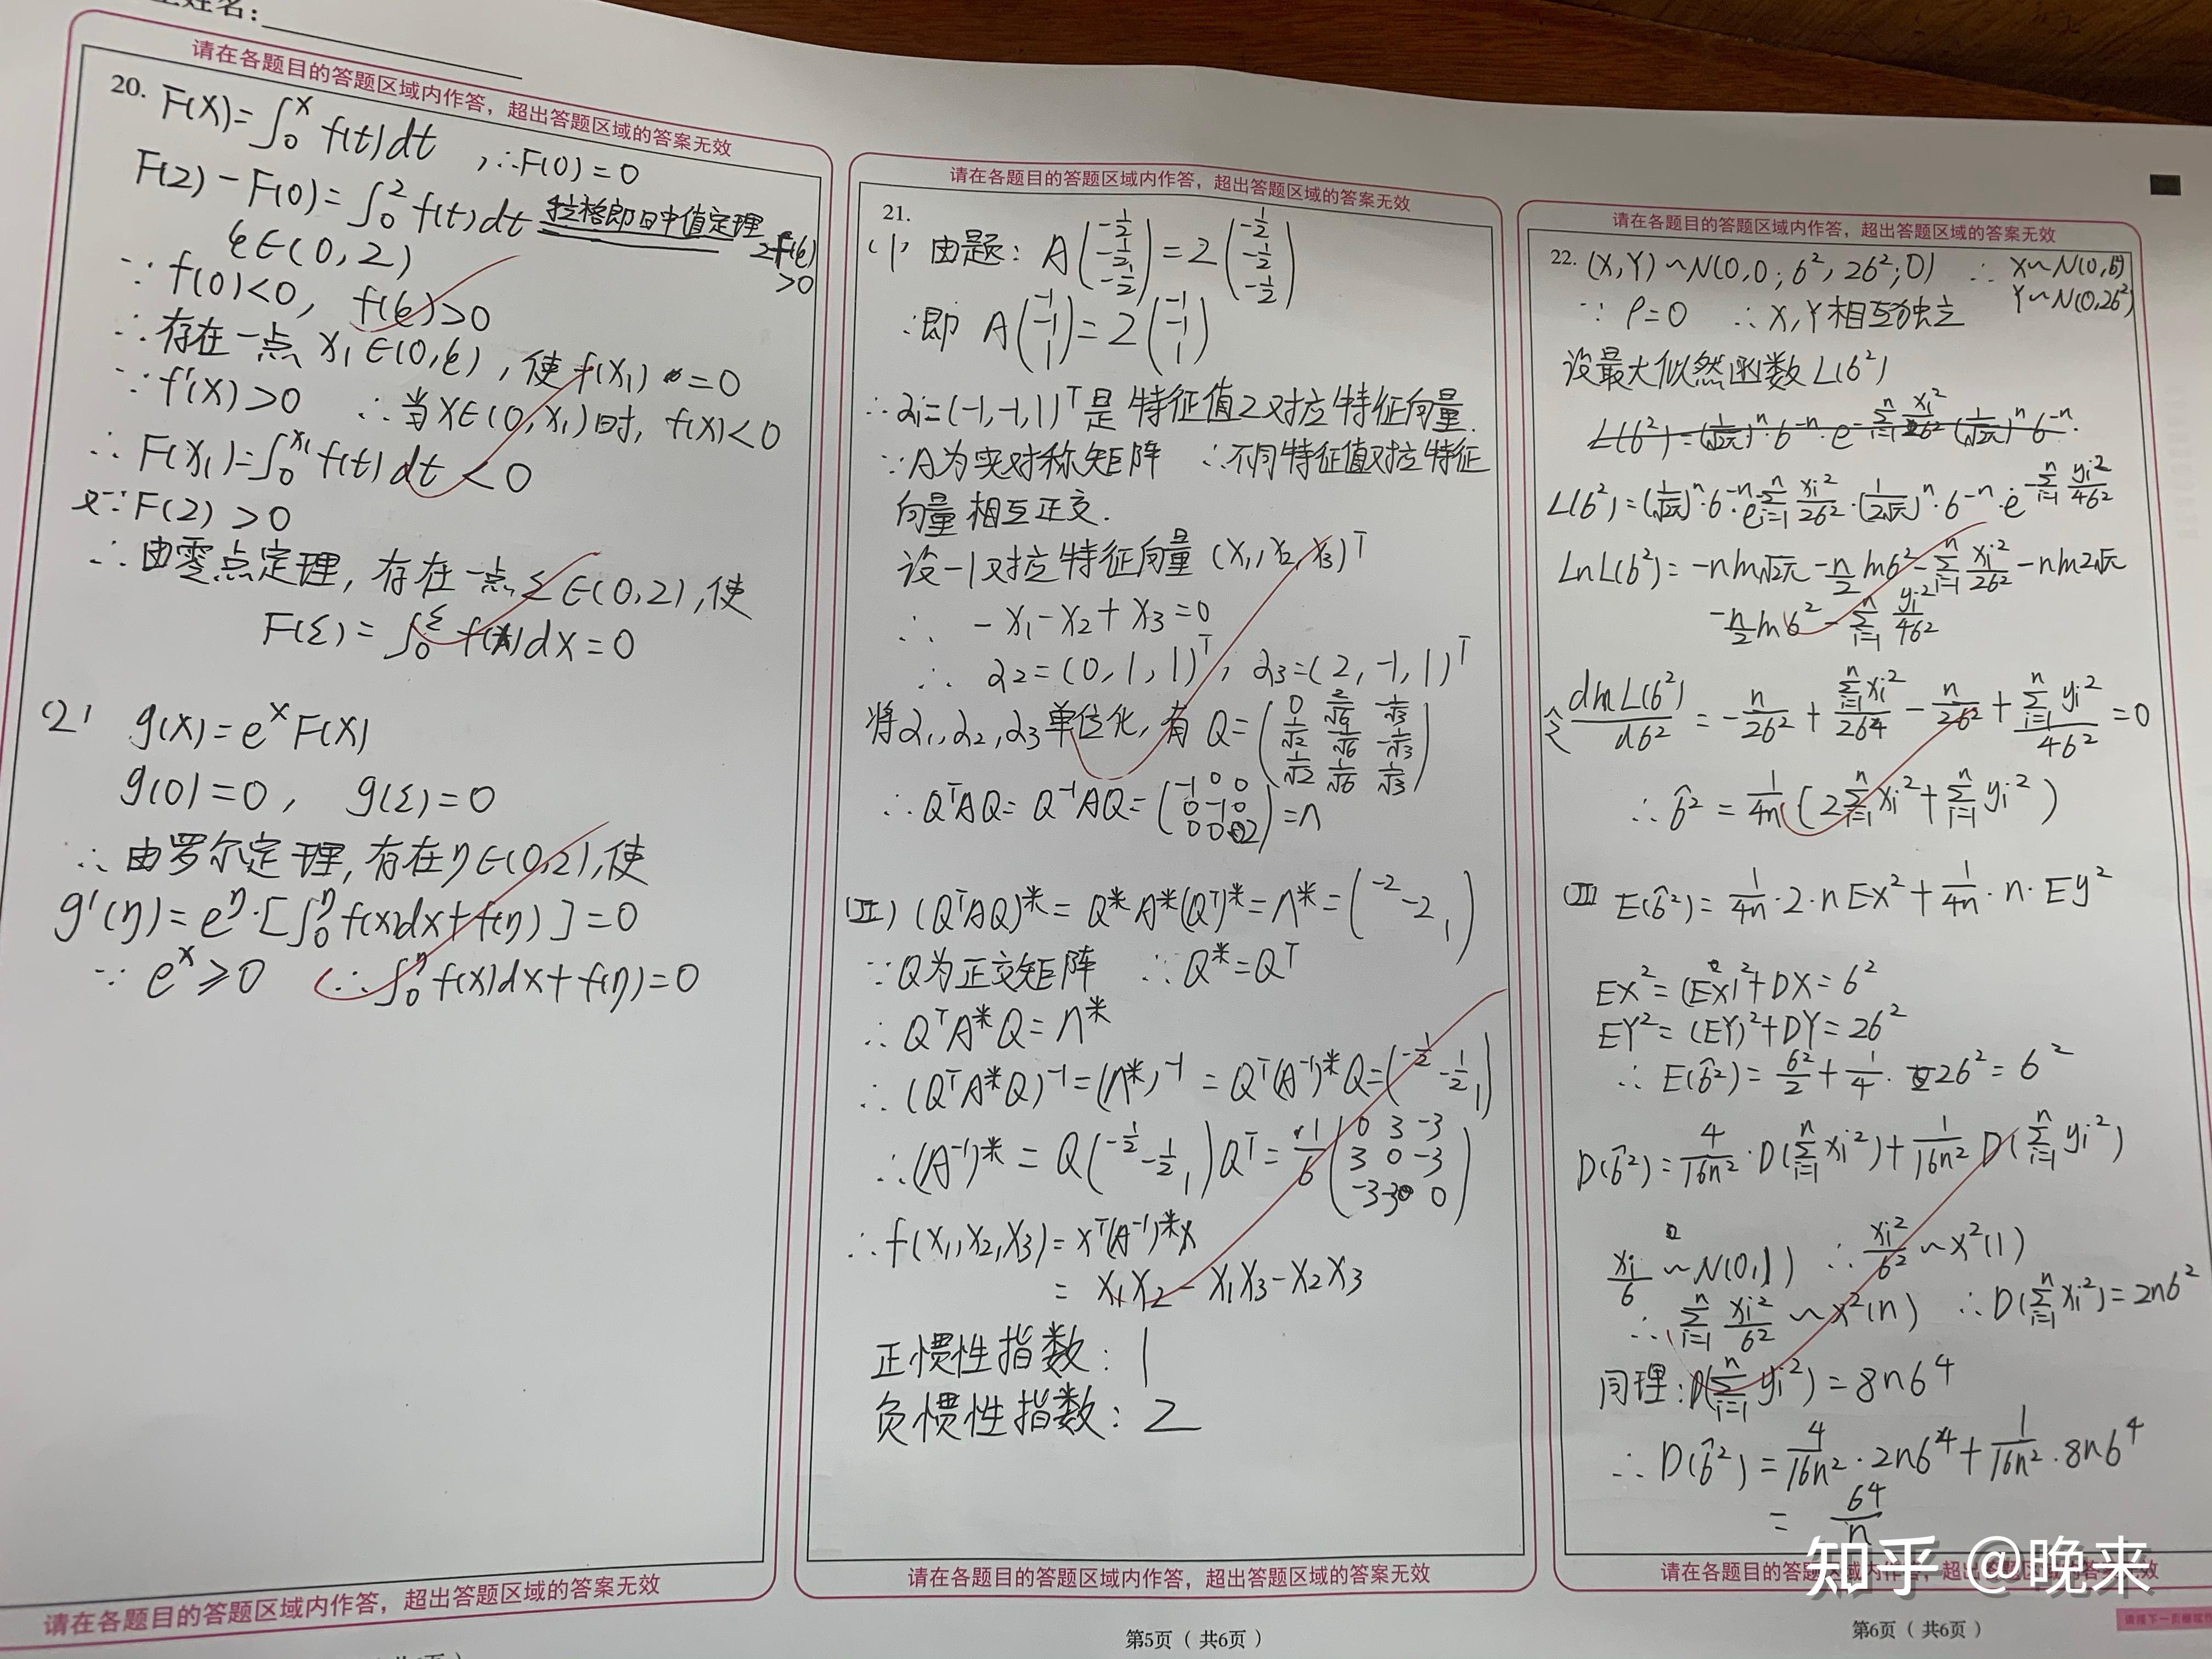 姓名:
请在各题目的答题区域内作答，超出答题区域的答案无效
20. F(x)=∫₀ˣ f(t)dt ,∴F(0)=0
F(2)-F(0)=∫₀² f(t)dt 拉格郎日中值定理 2f(ξ)>0
ξ∈(0,2)
∵f(0)<0, f(ξ)>0
∴存在一点 x₁∈(0,ξ), 使 f(x₁)=0
∵f'(x)>0 ∴当x∈(0,x₁)时, f(x)<0
∴F(x₁)=∫₀^{x₁} f(t)dt<0
又∵F(2)>0
∴由零点定理, 存在一点ξ∈(0,2),使
F(ξ)=∫₀^ξ f(x)dx=0
(2) g(x)=eˣF(x)
g(0)=0, g(ξ)=0
∴由罗尔定理,存在η∈(0,2),使
g'(η)=e^η·[∫₀^η f(x)dx+f(η)]=0
∵eˣ≥0 ∴∫₀^η f(x)dx+f(η)=0
请在各题目的答题区域内作答，超出答题区域的答案无效
请在各题目的答题区域内作答，超出答题区域的答案无效
21.
(1) 由题: A(-1/2, -1/2, -1/2)=2(-1/2, -1/2, -1/2)
∴即 A(-1, -1, 1)=2(-1, -1, 1)
∴α₁=(-1,-1,1)ᵀ是特征值2对应特征向量.
∵A为实对称矩阵 ∴不同特征值对应特征
向量相互正交.
设-1对应特征向量(x₁,x₂,x₃)ᵀ
∴ -x₁-x₂+x₃=0
∴ α₂=(0,1,1)ᵀ, α₃=(2,-1,1)ᵀ
将α₁,α₂,α₃单位化,有Q=(0 2/√6 -1/√3; 1/√2 -1/√6 -1/√3; 1/√2 1/√6 1/√3)
∴QᵀAQ=Q⁻¹AQ=(-1 0 0; 0 -1 0; 0 0 2)=Λ
(II) (QᵀAQ)*=Q*A*(Qᵀ)*=Λ*=(-2 -2 1)
∵Q为正交矩阵 ∴Q*=Qᵀ
∴QᵀA*Q=Λ*
∴(QᵀA*Q)⁻¹=(Λ*)⁻¹=Qᵀ(A⁻¹)*Q=(-1/2 -1/2 1)
∴(A⁻¹)*=Q(-1/2 -1/2 1)Qᵀ=1/6(0 3 -3; 3 0 -3; -3 -3 0)
∴f(x₁,x₂,x₃)=xᵀ(A⁻¹)*x
=x₁x₂-x₁x₃-x₂x₃
正惯性指数: 1
负惯性指数: 2
请在各题目的答题区域内作答，超出答题区域的答案无效
第5页（共6页）
请在各题目的答题区域内作答，超出答题区域的答案无效
22. (X,Y)~N(0,0;6²,26²;0) ∴X~N(0,6²)
Y~N(0,26²)
∵ρ=0 ∴X,Y相互独立
设最大似然函数L(6²)
L(6²)=(1/√2π)ⁿ·6⁻ⁿ·e^{-Σⁿᵢ₌₁ xᵢ²/26²}(1/√2π)ⁿ6⁻ⁿ·
L(6²)=(1/√2π)ⁿ·6⁻ⁿ·e^{-Σⁿᵢ₌₁ xᵢ²/26²}·(1/2√π)ⁿ·6⁻ⁿ·e^{-Σⁿᵢ₌₁ yᵢ²/46²}
LnL(6²)=-nln√2π-n/2 ln6²-Σⁿᵢ₌₁ xᵢ²/26²-nln2√π
-n/2 ln6²-Σⁿᵢ₌₁ yᵢ²/46²
令 dlnL(6²)/d6²=-n/26²+Σⁿᵢ₌₁xᵢ²/264-n/26²+Σⁿᵢ₌₁yᵢ²/46²=0
∴6̂²=1/4n(2Σⁿᵢ₌₁xᵢ²+Σⁿᵢ₌₁yᵢ²)
(II) E(6̂²)=1/4n·2·nEx²+1/4n·n·Ey²
EX²=(EX)²+DX=6²
EY²=(EY)²+DY=26²
∴E(6̂²)=6²/2+1/4·26²=6²
D(6̂²)=4/16n²·D(Σⁿᵢ₌₁xᵢ²)+1/16n² D(Σⁿᵢ₌₁yᵢ²)
xᵢ/6~N(0,1) ∴xᵢ²/6²~x²(1)
∴Σⁿᵢ₌₁ xᵢ²/6²~x²(n) ∴D(Σⁿᵢ₌₁xᵢ²)=2n6²
同理:D(Σⁿᵢ₌₁yᵢ²)=8n6⁴
∴D(6̂²)=4/16n²·2n6⁴+1/16n²·8n6⁴
=6⁴/n
请在各题目的答题区域内作答，超出答题区域的答案无效
知乎 @晚来
第6页（共6页）